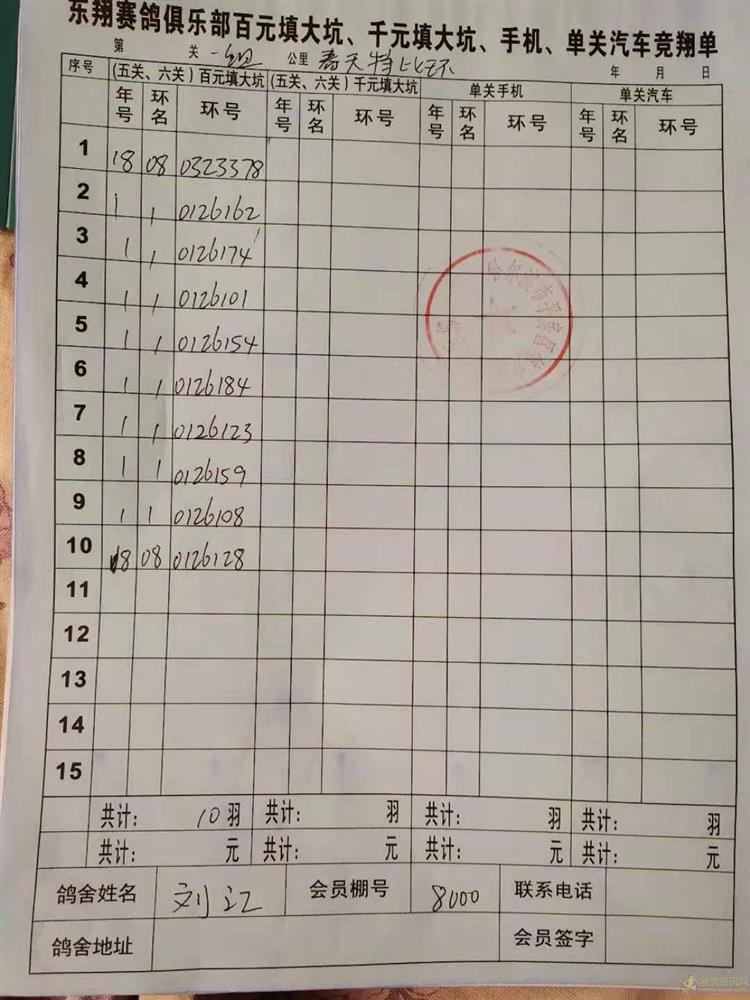 东翔赛鸽俱乐部百元填大坑、千元填大坑、手机、单关汽车竞翔单
第 关 一组 公里 春天特比环 年 月 日
序号 (五关、六关)百元填大坑 (五关、六关)千元填大坑 单关手机 单关汽车
年号 环名 环号 年号 环名 环号 年号 环名 环号 年号 环名 环号
1 18 08 0323378
2 1 1 0126162
3 1 1 0126174
4 1 1 0126101
5 1 1 0126154
6 1 1 0126184
7 1 1 0126123
8 1 1 0126159
9 1 1 0126108
10 18 08 0126128
11
12
13
14
15
共计: 10羽 共计: 羽 共计: 羽 共计: 羽
共计: 元 共计: 元 共计: 元 共计: 元
鸽舍姓名 刘江 会员棚号 8000 联系电话
鸽舍地址 会员签字